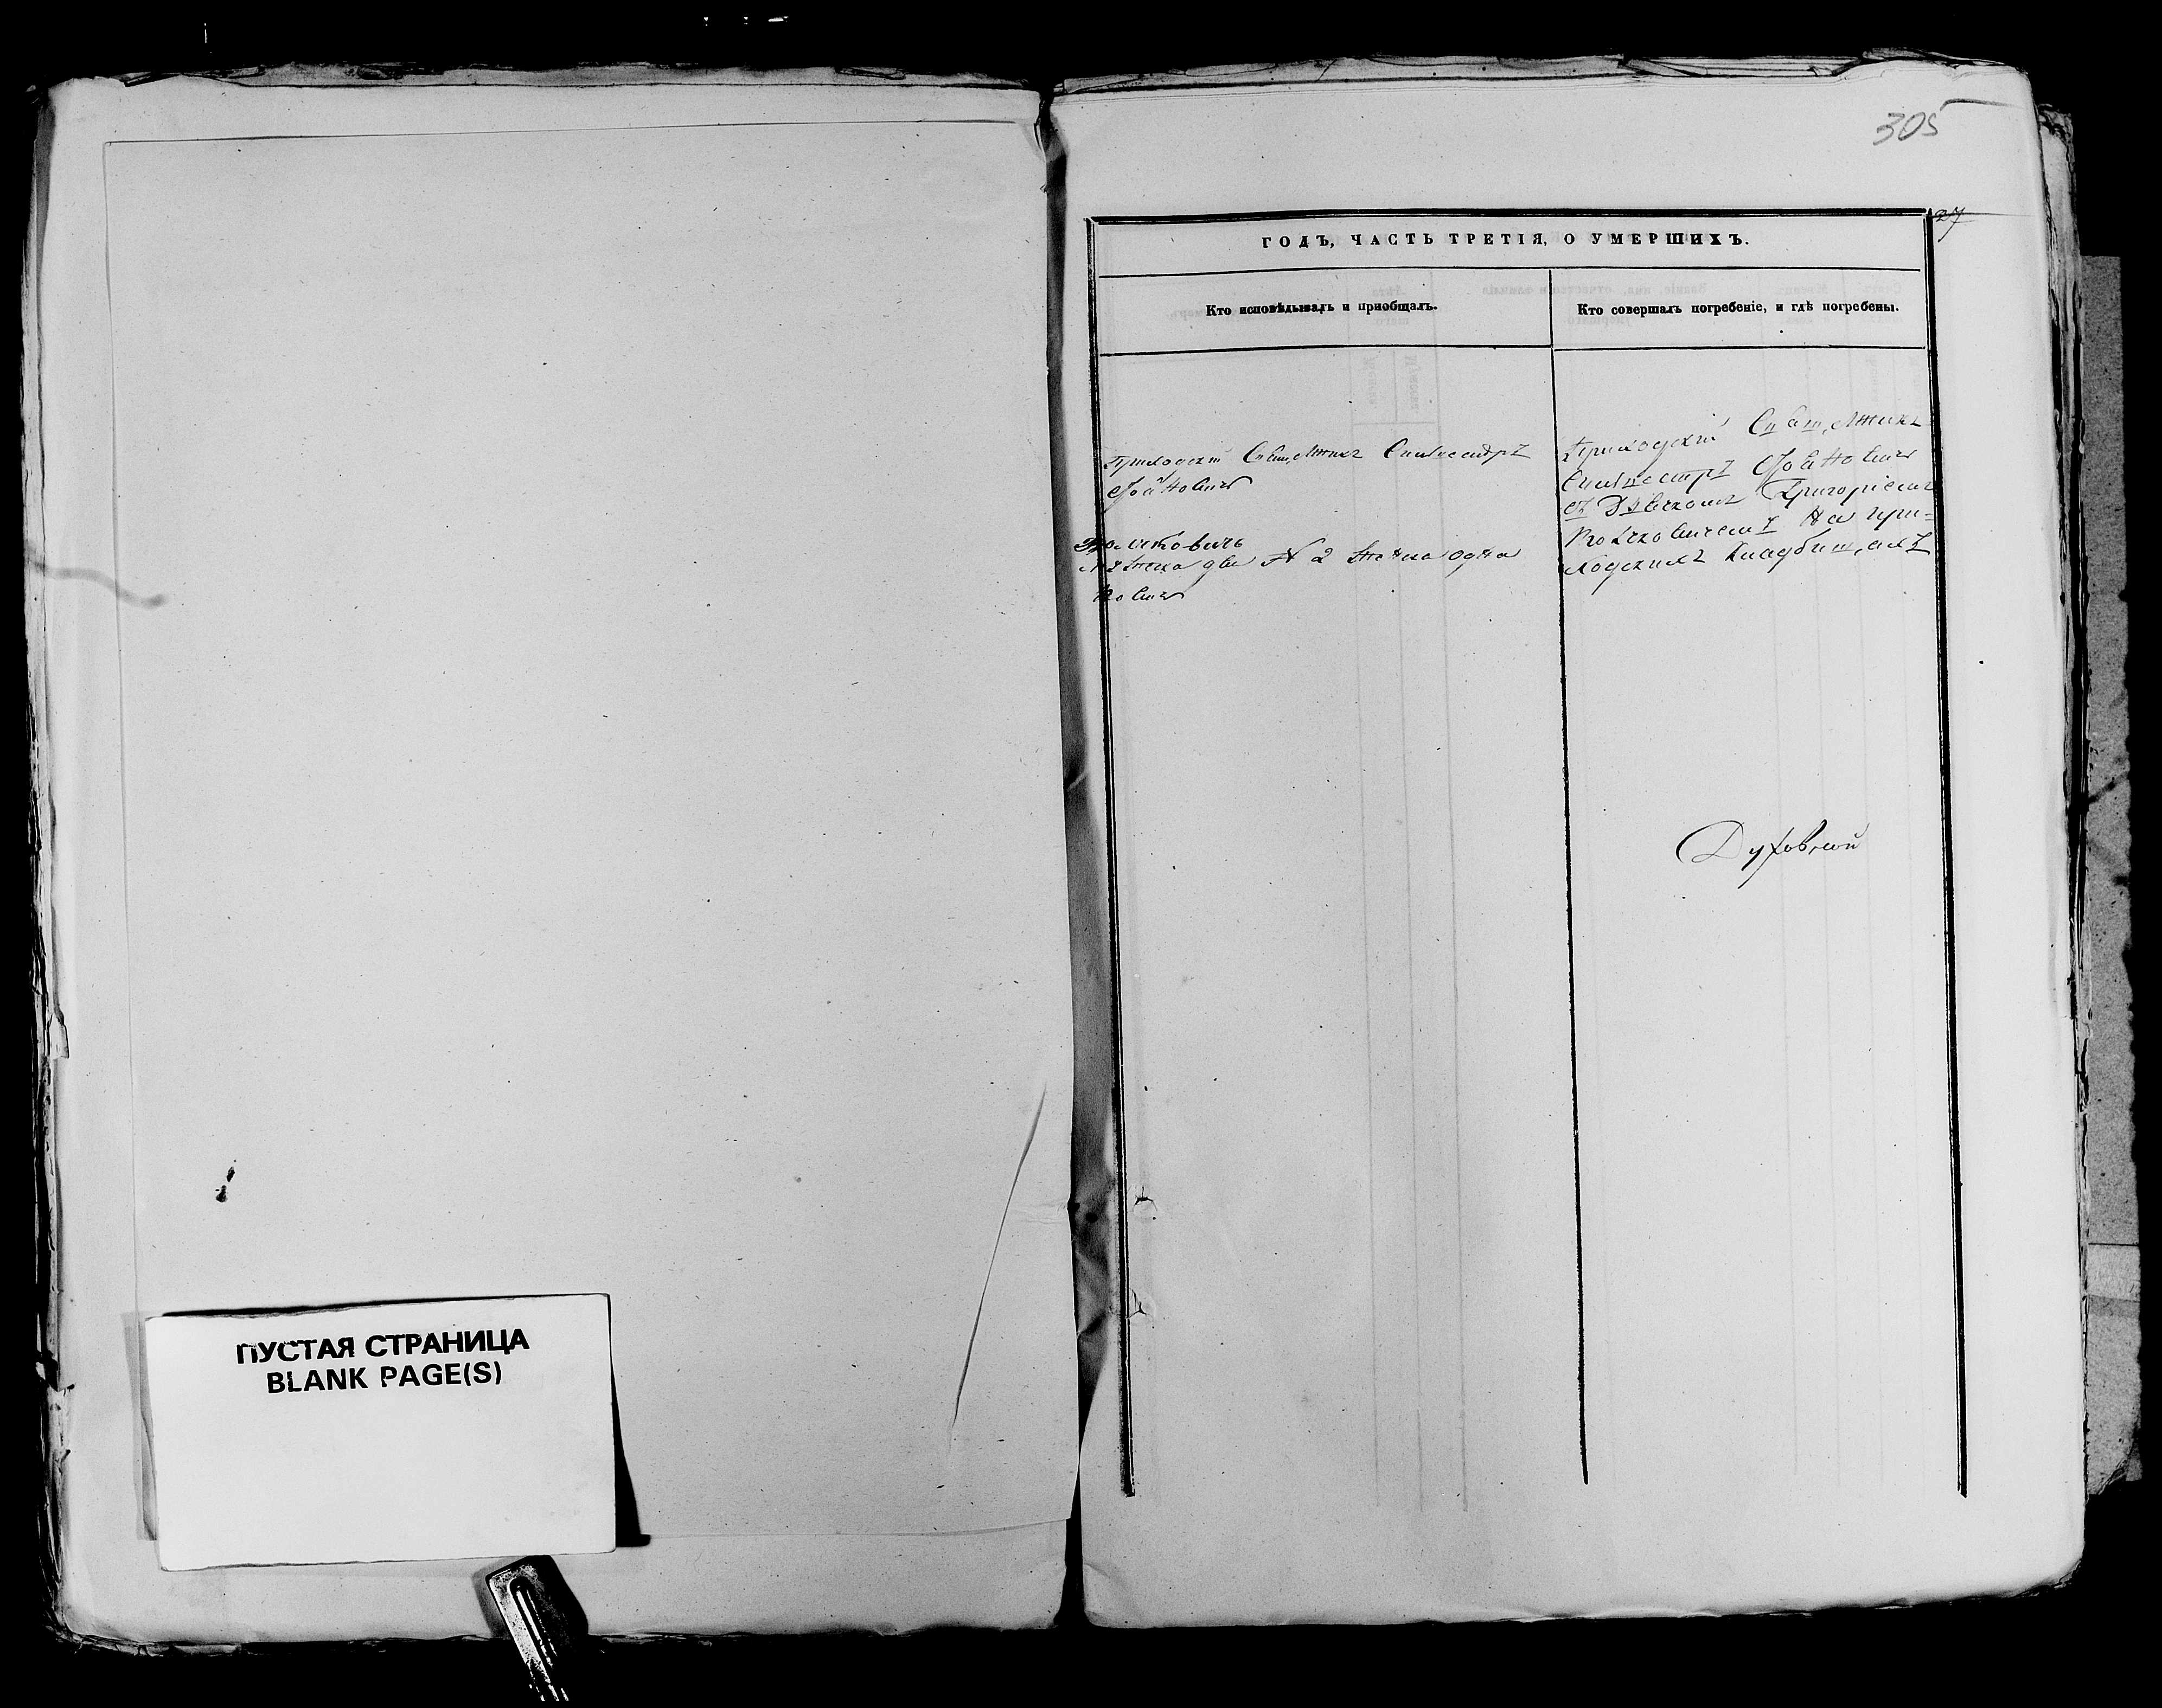 305
27
ГОДЪ, ЧАСТЬ ТРЕТІЯ, О УМЕРШИХЪ.
Кто исповѣдывалъ и пріобщалъ.
Кто совершалъ погребеніе, и гдѣ погребены.
Приходскій Священникъ Сильвестръ
Іоанновичъ
Приходскій Священникъ
Сильвестръ Іоанновичъ
съ Дьячкомъ Григоріемъ
на при=
ходскихъ кладбищахъ
два № 2 женска одна
Духовной
ПУСТАЯ СТРАНИЦА
BLANK PAGE(S)